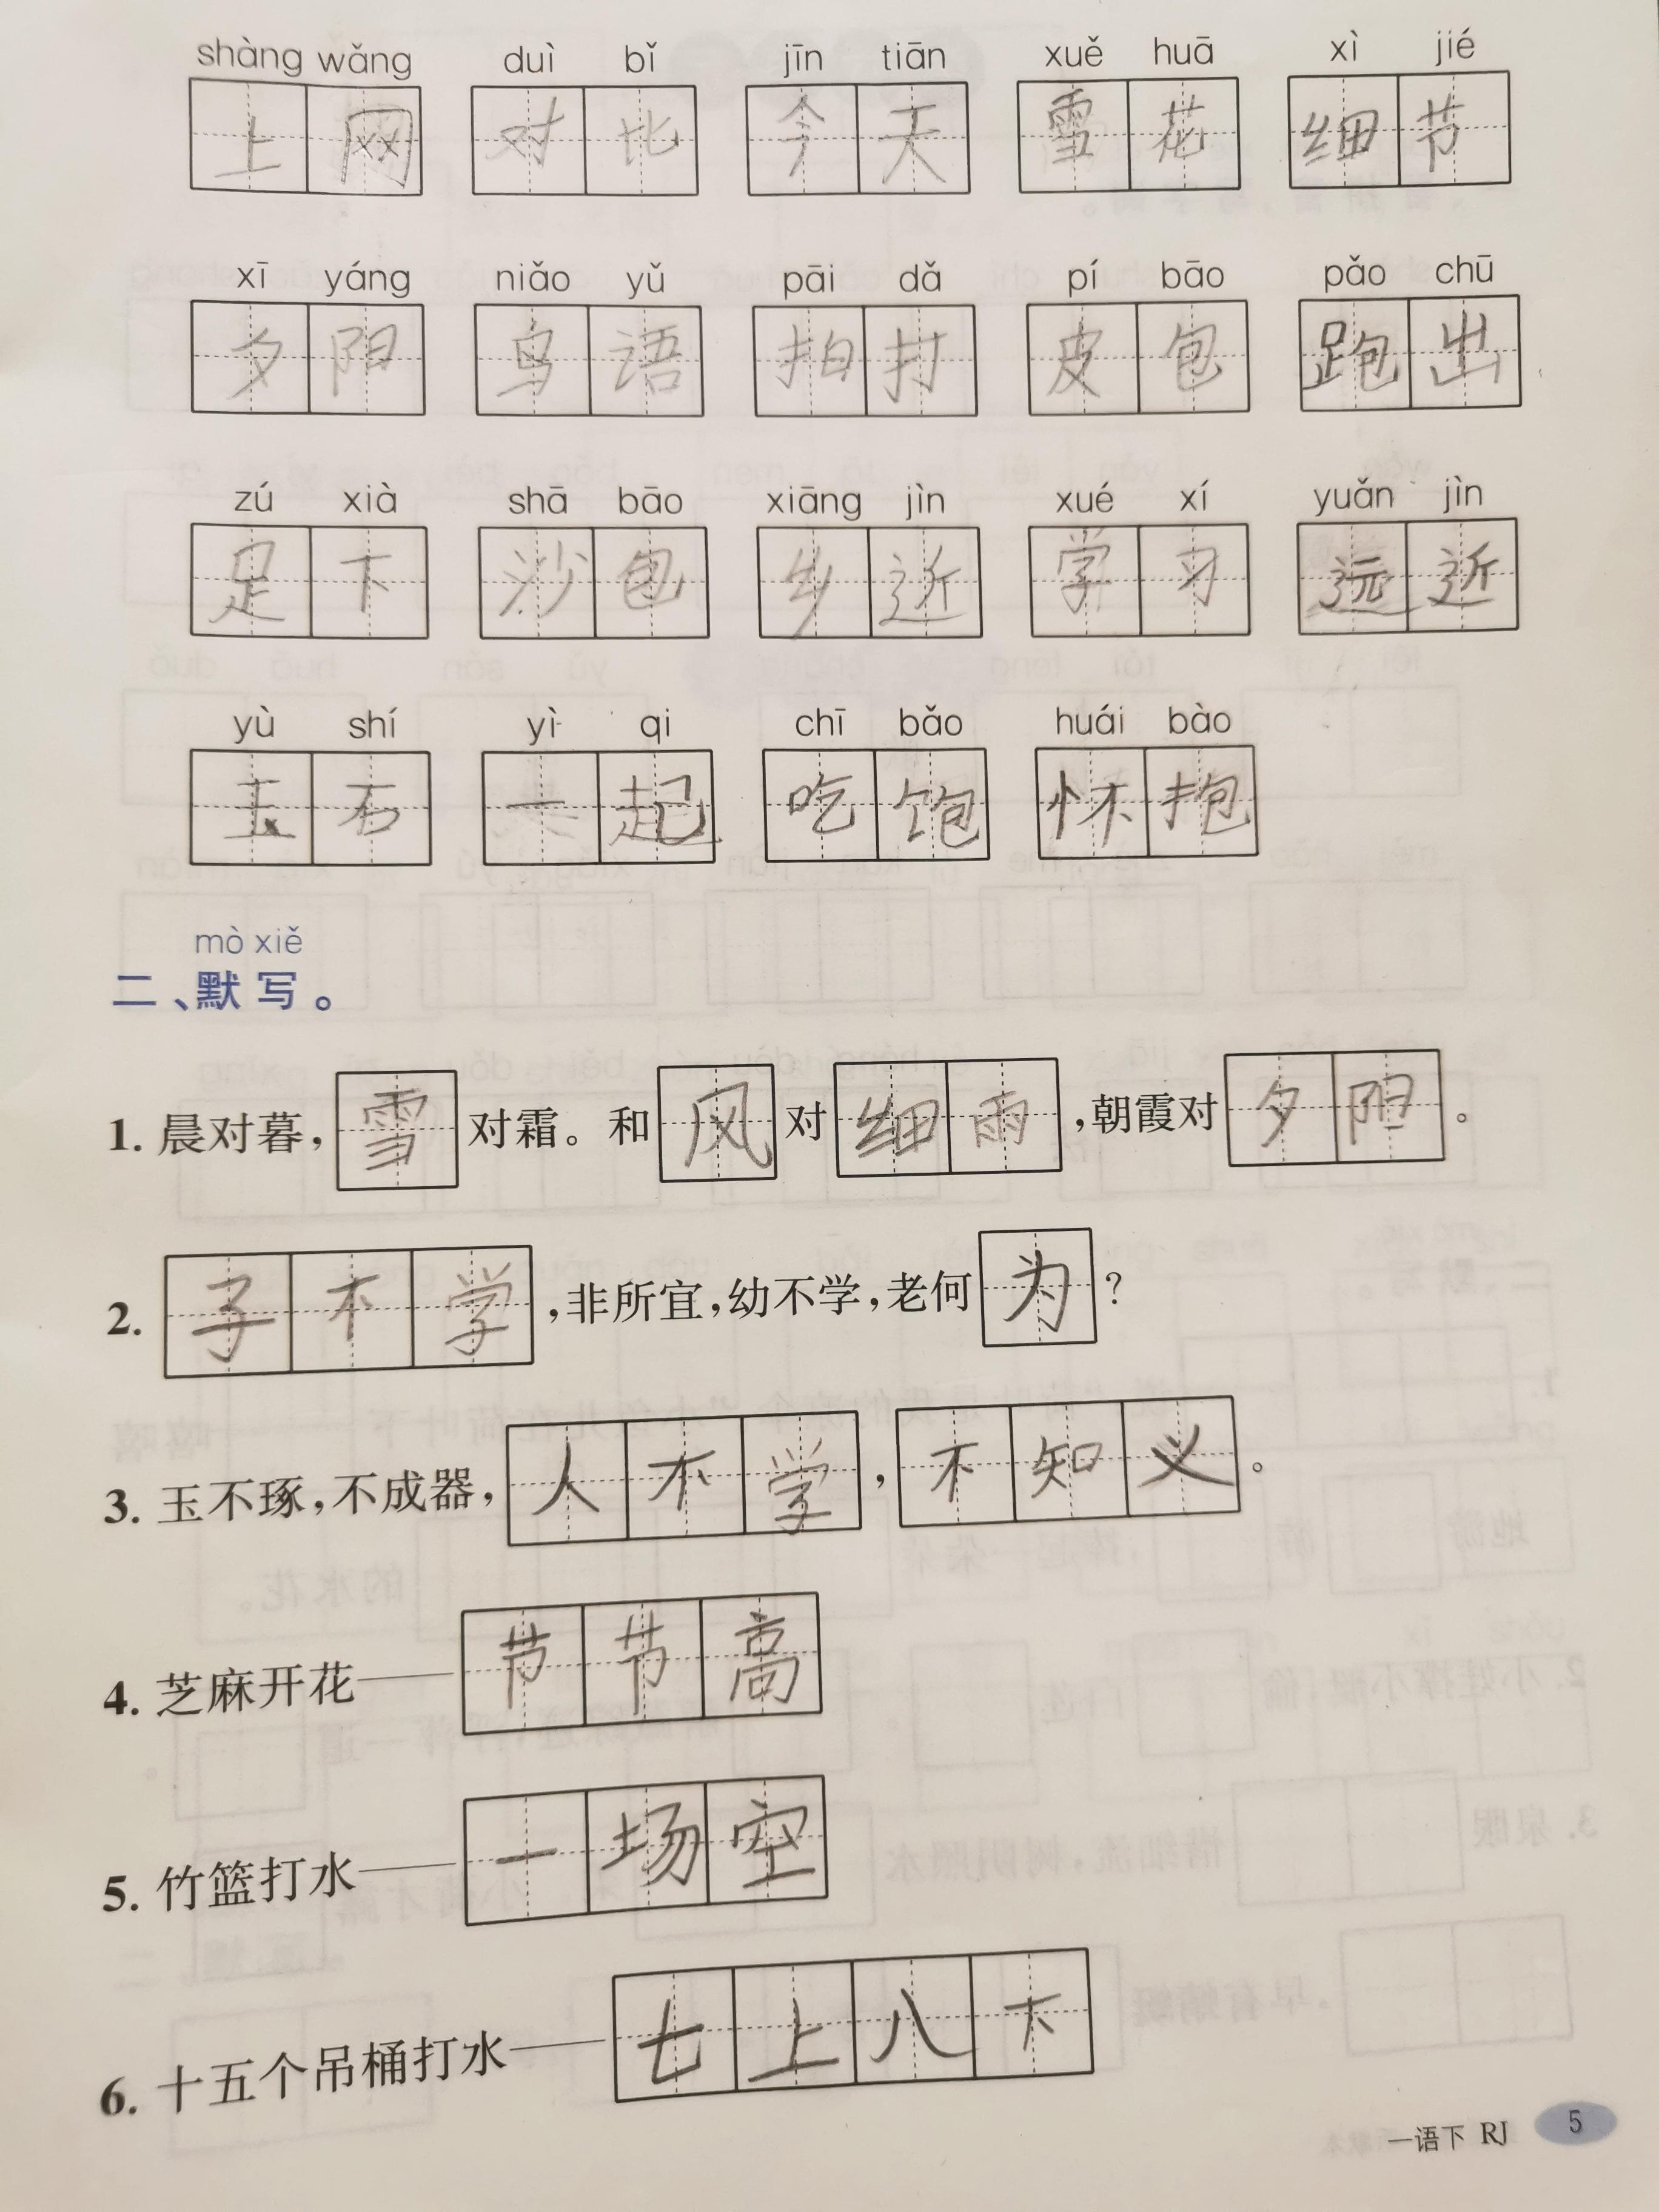 shàng wǎng duì bǐ jīn tiān xuě huā xì jié
上网 对比 今天 雪花 细节
xī yáng niǎo yǔ pāi dǎ pí bāo pǎo chū
夕阳 鸟语 拍打 皮包 跑出
zú xià shā bāo xiāng jìn xué xí yuǎn jìn
足下 沙包 乡近 学习 远近
yù shí yì qi chī bǎo huái bào
玉石 一起 吃饱 怀抱
mò xiě
二、默写。
1. 晨对暮，雪对霜。和风对细雨，朝霞对夕阳。
2. 子不学，非所宜，幼不学，老何为？
3. 玉不琢，不成器，人不学，不知义。
4. 芝麻开花——节节高
5. 竹篮打水——一场空
6. 十五个吊桶打水——七上八下
一语下 RJ 5